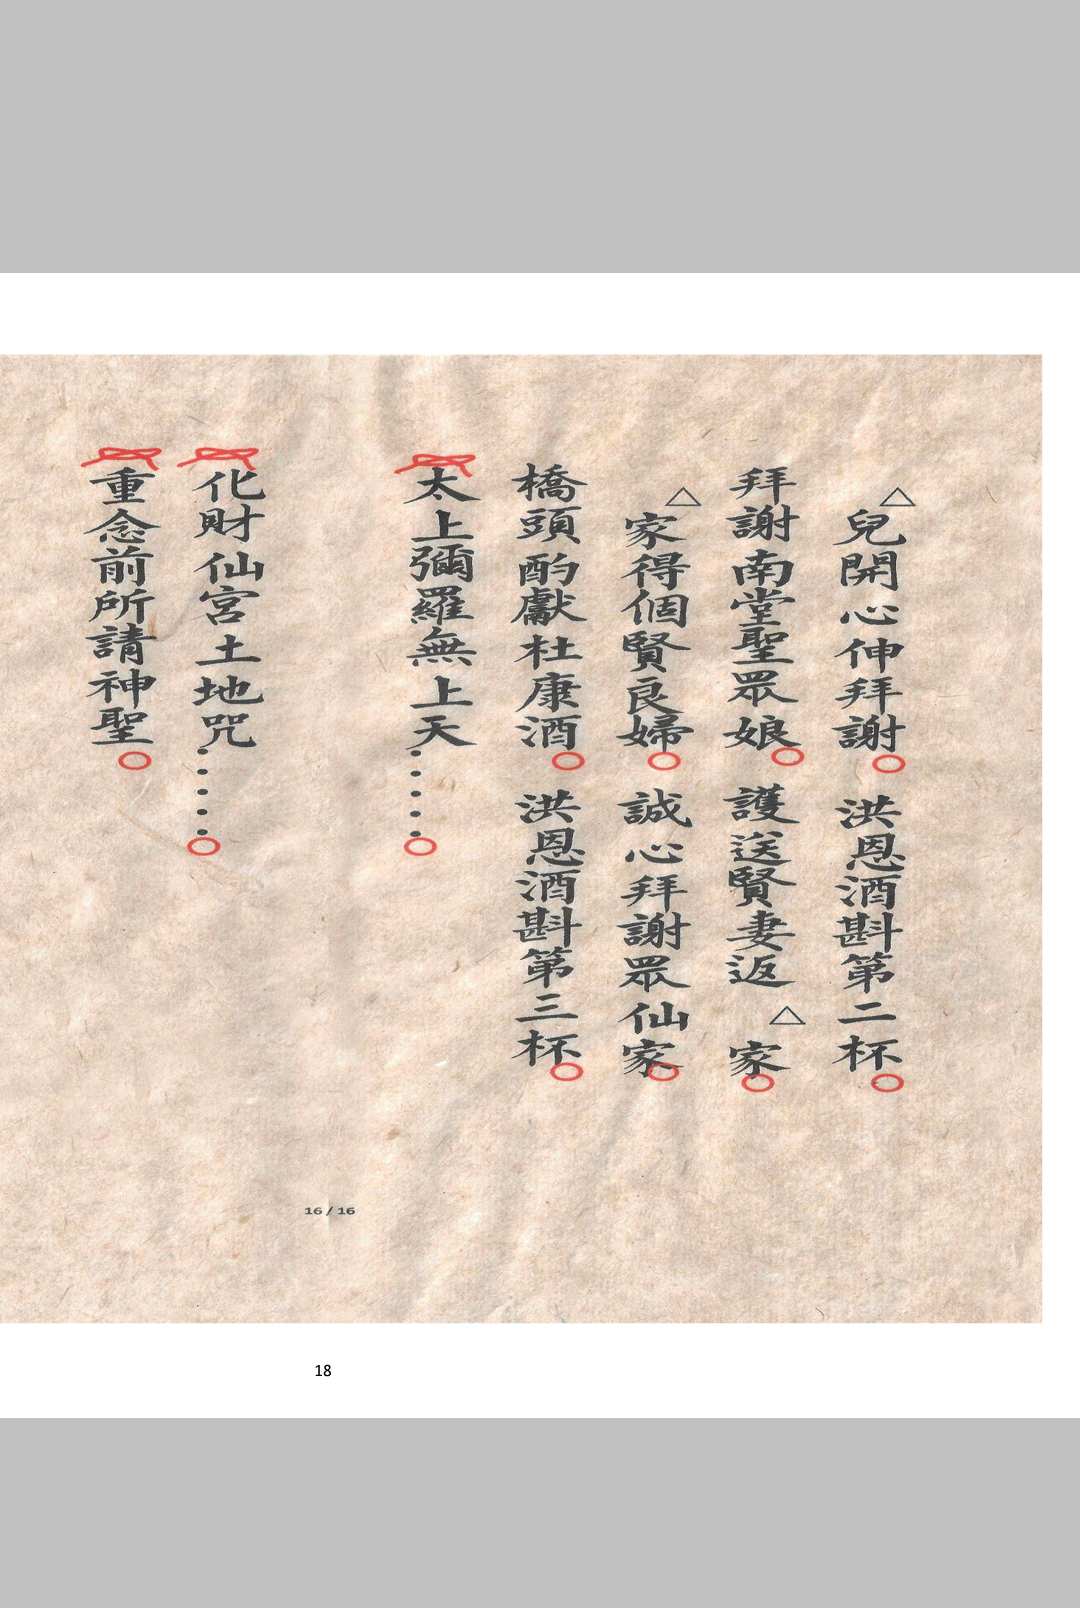 △兒開心伸拜謝○洪恩酒斟第二杯○
拜謝南堂聖眾娘○護送賢妻返△家○
△家得個賢良婦○誠心拜謝眾仙家○
橋頭酌獻杜康酒○洪恩酒斟第三杯○
太上彌羅無上天·····○
化財仙宮土地咒·····○
重念前所請神聖○
16/16
18